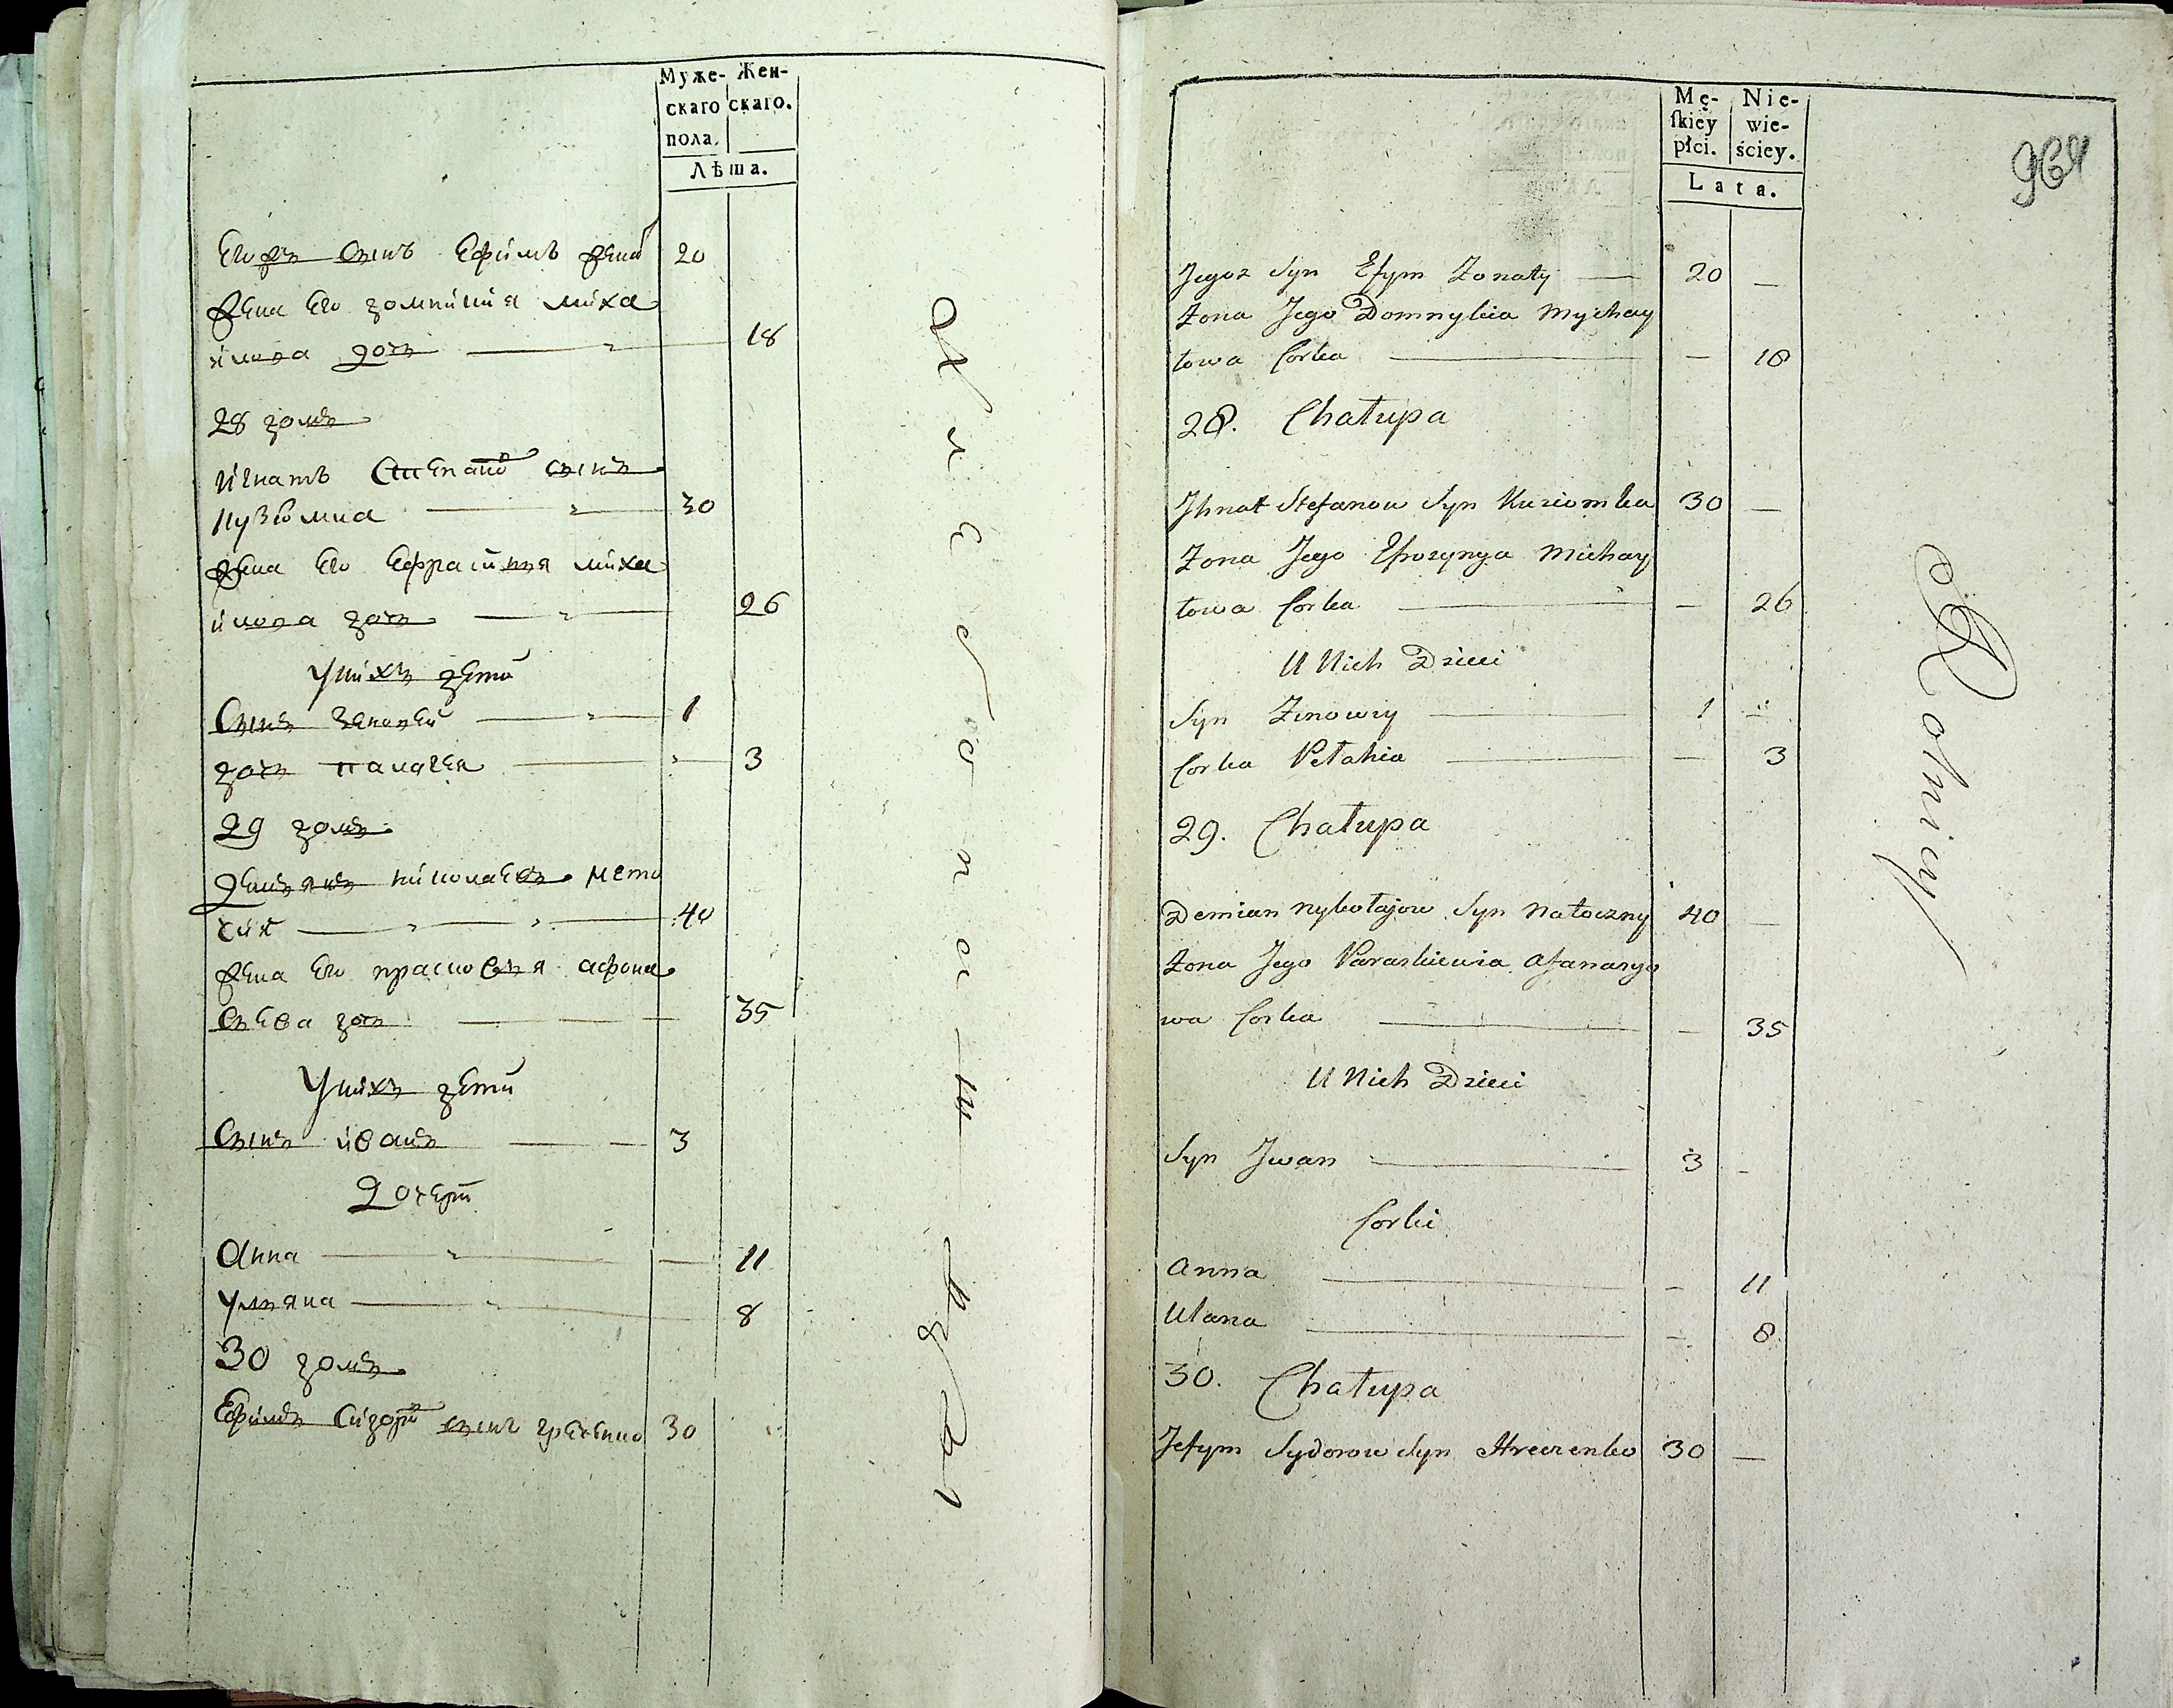 Муже- Жен-
скаго скаго.
пола.
Лѣта.
Егоръ сынъ Ефимъ жена 20
Жена Его домникия миха
илова дочь 18
28 домъ
Игнатъ Степано сынъ
Кузьомка 30
Жена Его Ефрасиния миха
илова дочь 26
У нихъ дети
Сынъ Зеновей 1
дочь палагея 3
29 домъ
Демьянъ николаевъ
40
Жена Его прасковья афона
сьева дочь 35
У нихъ дети
Сынъ иванъ 3
Дочери
Анна 11
Ульяна 8
30 домъ
Ефимъ Сидоро сынъ греченко 30
Хлебопашцы
Mę- Nie-
ſkiey wie-
płci. ściey.
Lata.
964
Jegor Syn Efym Żonaty 20 —
Żona Jego Domnykia Mychay
łowa Corka — 18
28. Chałupa
Jhnat Stefanow Syn Kuziomka 30 —
Żona Jego Efrozynya Michay
łowa Corka — 26
U Nich Dzieci
Syn Zinowiy 1 —
Corka Pełahia — 3
29. Chałupa
Demian Nykołajow Syn Natoczny 40 —
Żona Jego Paraskiewia Afanasyo
wa Corka — 35
U Nich Dzieci
Syn Jwan 3 —
Corki
Anna — 11
Ulana — 8
30. Chałupa
Jefym Sydorow Syn Hreczenko 30 —
Rolnicy